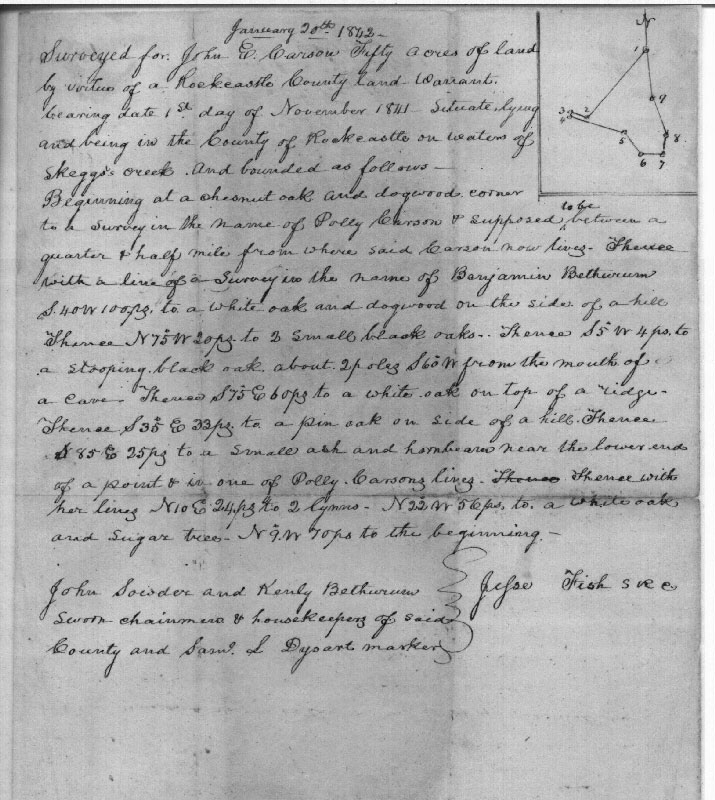 January 20th 1842
Surveyed for John E. Carson Fifty acres of land
by virtue of a Rockcastle County land Warrant
bearing date 1st day of November 1841 Situate, lying
and being in the County of Rockcastle on waters of
Skeggs creek. And bounded as follows—
Beginning at a chesnut oak and dogwood corner
to a Survey in the name of Polly Carson & supposed to be between a
quarter & half mile from where said Carson now lives- Thence
with a line of a Survey in the name of Benjamin Bethurum
S. 40 W 100 ps. to a white oak and dogwood on the side of a hill
Thence N 75 W 20 ps to 2 Small black oaks- Thence S 5 W 4 ps. to
a stooping black oak about 2 poles S 60 W from the mouth of
a cave Thence S 75 E 60 ps to a white oak on top of a ridge-
Thence S 35 E 33 ps. to a pin oak on side of a hill. Thence
S 85 E 25 ps to a Small ash and hornbeam near the lower end
of a point & in one of Polly Carsons lines- Thence Thence with
her lines N 10 E 24 ps to 2 lynns- N 22 W 56 ps. to a white oak
and Sugar tree- N 9 W 70 ps to the beginning.—
John Sowder and Kenly Bethurum
Sworn chainmen & housekeepers of said
County and Saml. S Dysart marker
Jesse Fish S R C
N
1
9
3 2
4
5
8
6 7